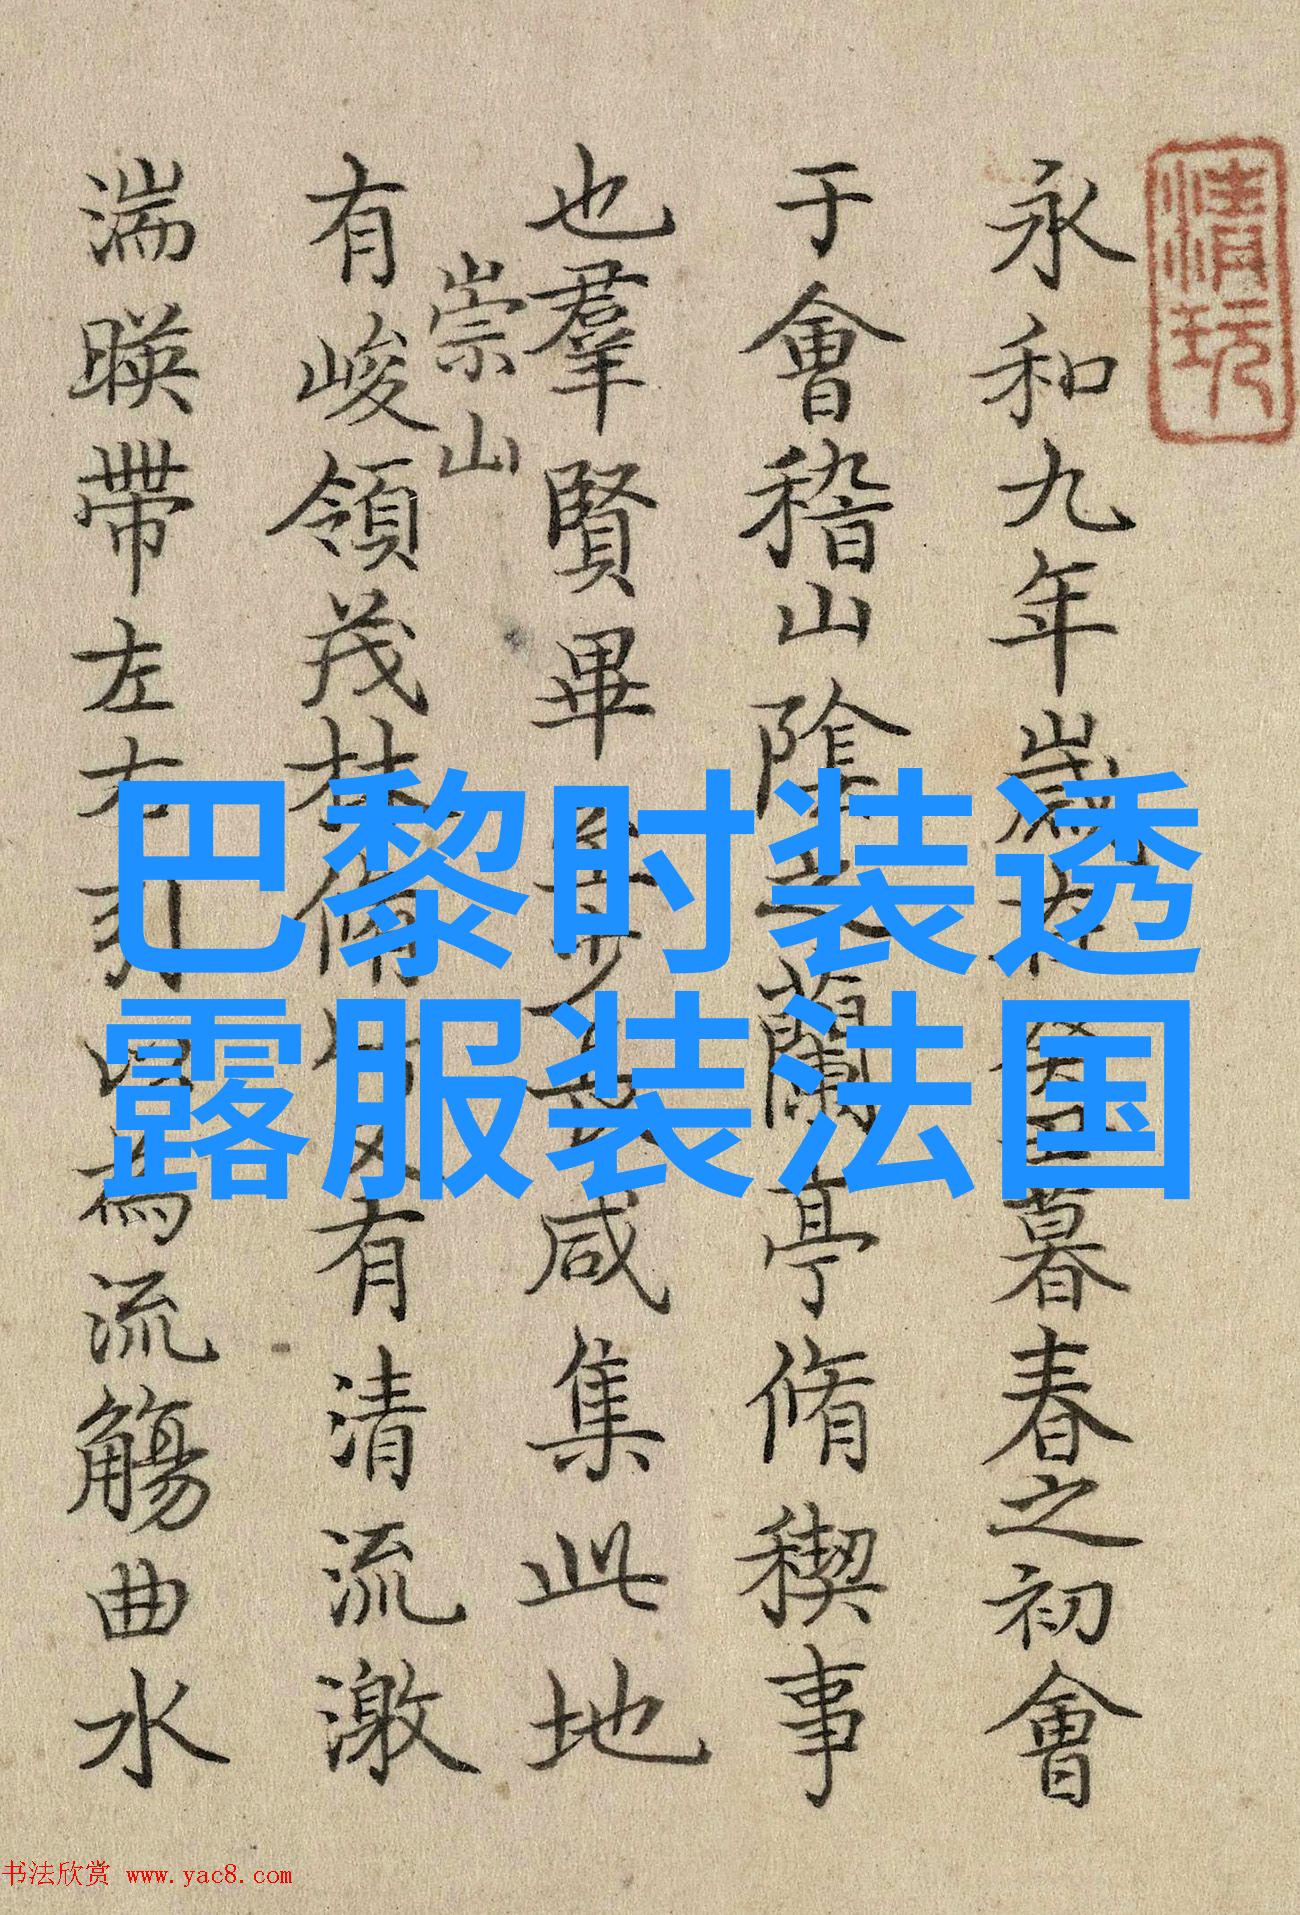 清玩
永和九年歲在癸丑暮春之初會
于會稽山陰之蘭亭脩稧事
也羣賢畢至少長咸集此地
崇山
有峻領茂林脩竹又有清流激
湍暎帶左右引以為流觴曲水
巴黎时装透
露服装法国
书法欣赏 www.yac8.com